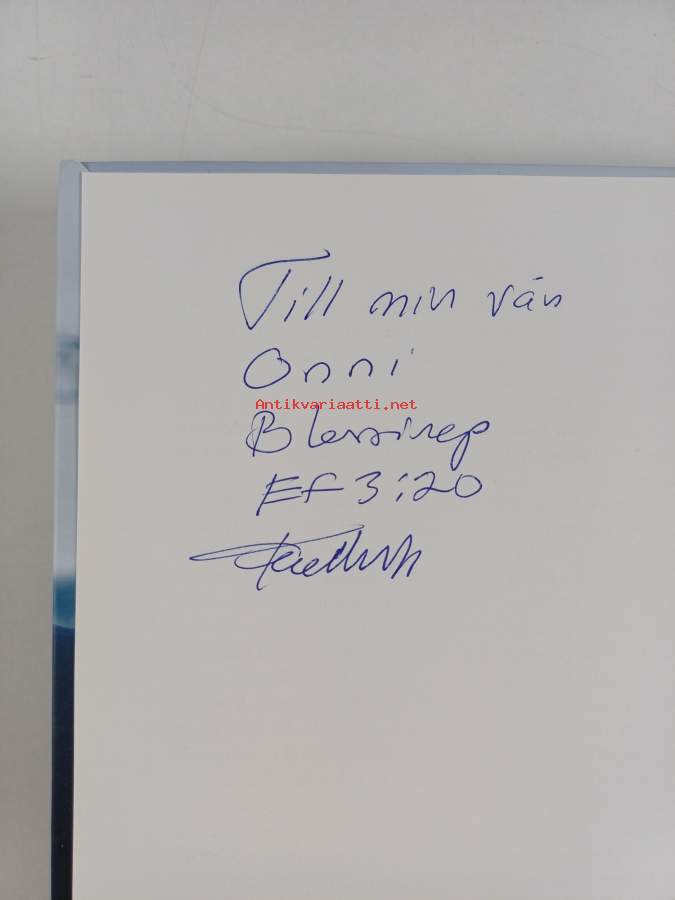 Till min vän
Onni
Antikvariaatti.net
Ef 3:20